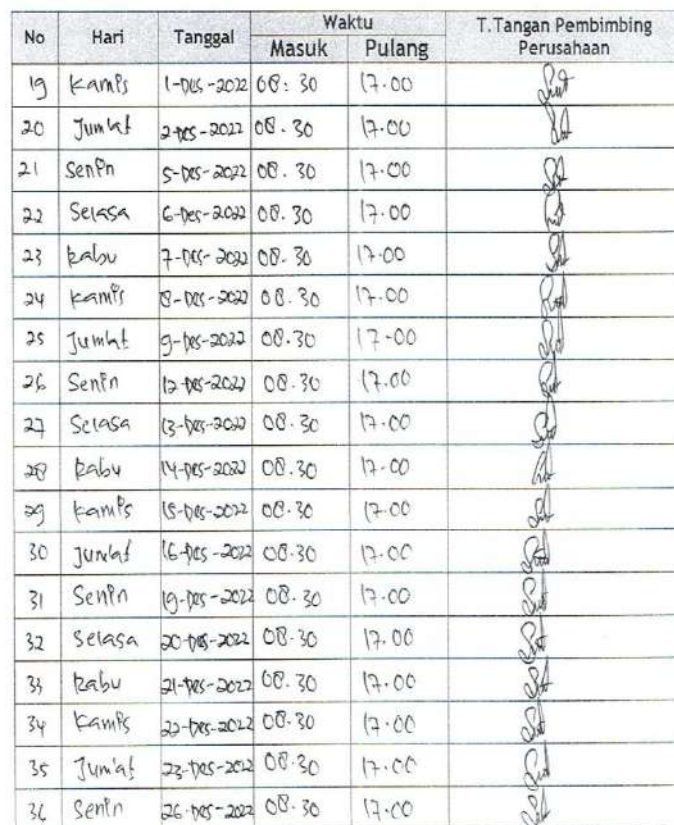 No Hari Tanggal Waktu T.Tangan Pembimbing Perusahaan
Masuk Pulang
19 Kamis 1-Des-2022 08:30 17.00
20 Jum'at 2-Des-2022 08.30 17.00
21 Senin 5-Des-2022 08.30 17.00
22 Selasa 6-Des-2022 08.30 17.00
23 Rabu 7-Des-2022 08.30 17.00
24 Kamis 8-Des-2022 08.30 17.00
25 Jum'at 9-Des-2022 08.30 17-00
26 Senin 12-Des-2022 08.30 17.00
27 Selasa 13-Des-2022 08.30 17.00
28 Rabu 14-Des-2022 08.30 17.00
29 Kamis 15-Des-2022 08.30 17.00
30 Jum'at 16-Des-2022 08.30 17.00
31 Senin 19-Des-2022 08.30 17.00
32 Selasa 20-Des-2022 08.30 17.00
33 Rabu 21-Des-2022 08.30 17.00
34 Kamis 22-Des-2022 08.30 17.00
35 Jum'at 23-Des-2022 08.30 17.00
36 Senin 26-Des-2022 08.30 17.00